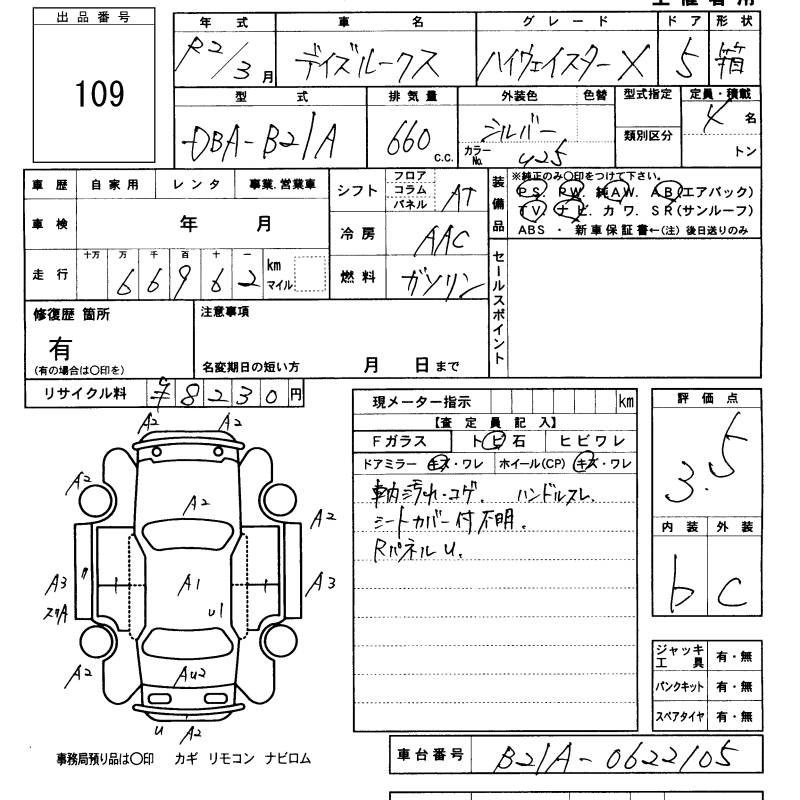 出品番号
109
年式 車名 グレード ドア 形状
R2/3月 デイズルークス ハイウェイスターX 5 箱
型式 排気量 外装色 色替 型式指定 定員・積載
DBA-B21A 660 C.C. シルバー カラーNo. U25 類別区分 4名
トン
車歴 自家用 レンタ 事業.営業車
車検 年 月
走行 十万 万 千 百 十 一
66962 km マイル
シフト フロア コラム パネル AT
冷房 AAC
燃料 ガソリン
装備品
※純正のみ〇印をつけて下さい。
PS. PW. 純AW. AB(エアバック)
TV. ナビ. カワ. SR(サンルーフ)
ABS ・ 新車保証書←(注) 後日送りのみ
セールスポイント
修復歴 箇所
有
(有の場合は〇印を)
注意事項
名変期日の短い方 月 日まで
リサイクル料 ¥8230円
現メーター指示 km
【査定員記入】
Fガラス トビ石 ヒビワレ
ドアミラー キズ・ワレ ホイール(CP) キズ・ワレ
車内汚れ・コゲ. ハンドルスレ.
シートカバー付不明.
Rパネルu.
評価点
3.5
内装 外装
b c
ジャッキ工具 有・無
パンクキット 有・無
スペアタイヤ 有・無
A2 A2
A2 A2 A2
A3 A1 A3
u1
A2 Au2 A2
u A2
事務局預り品は〇印 カギ リモコン ナビロム
車台番号 B21A-0622105